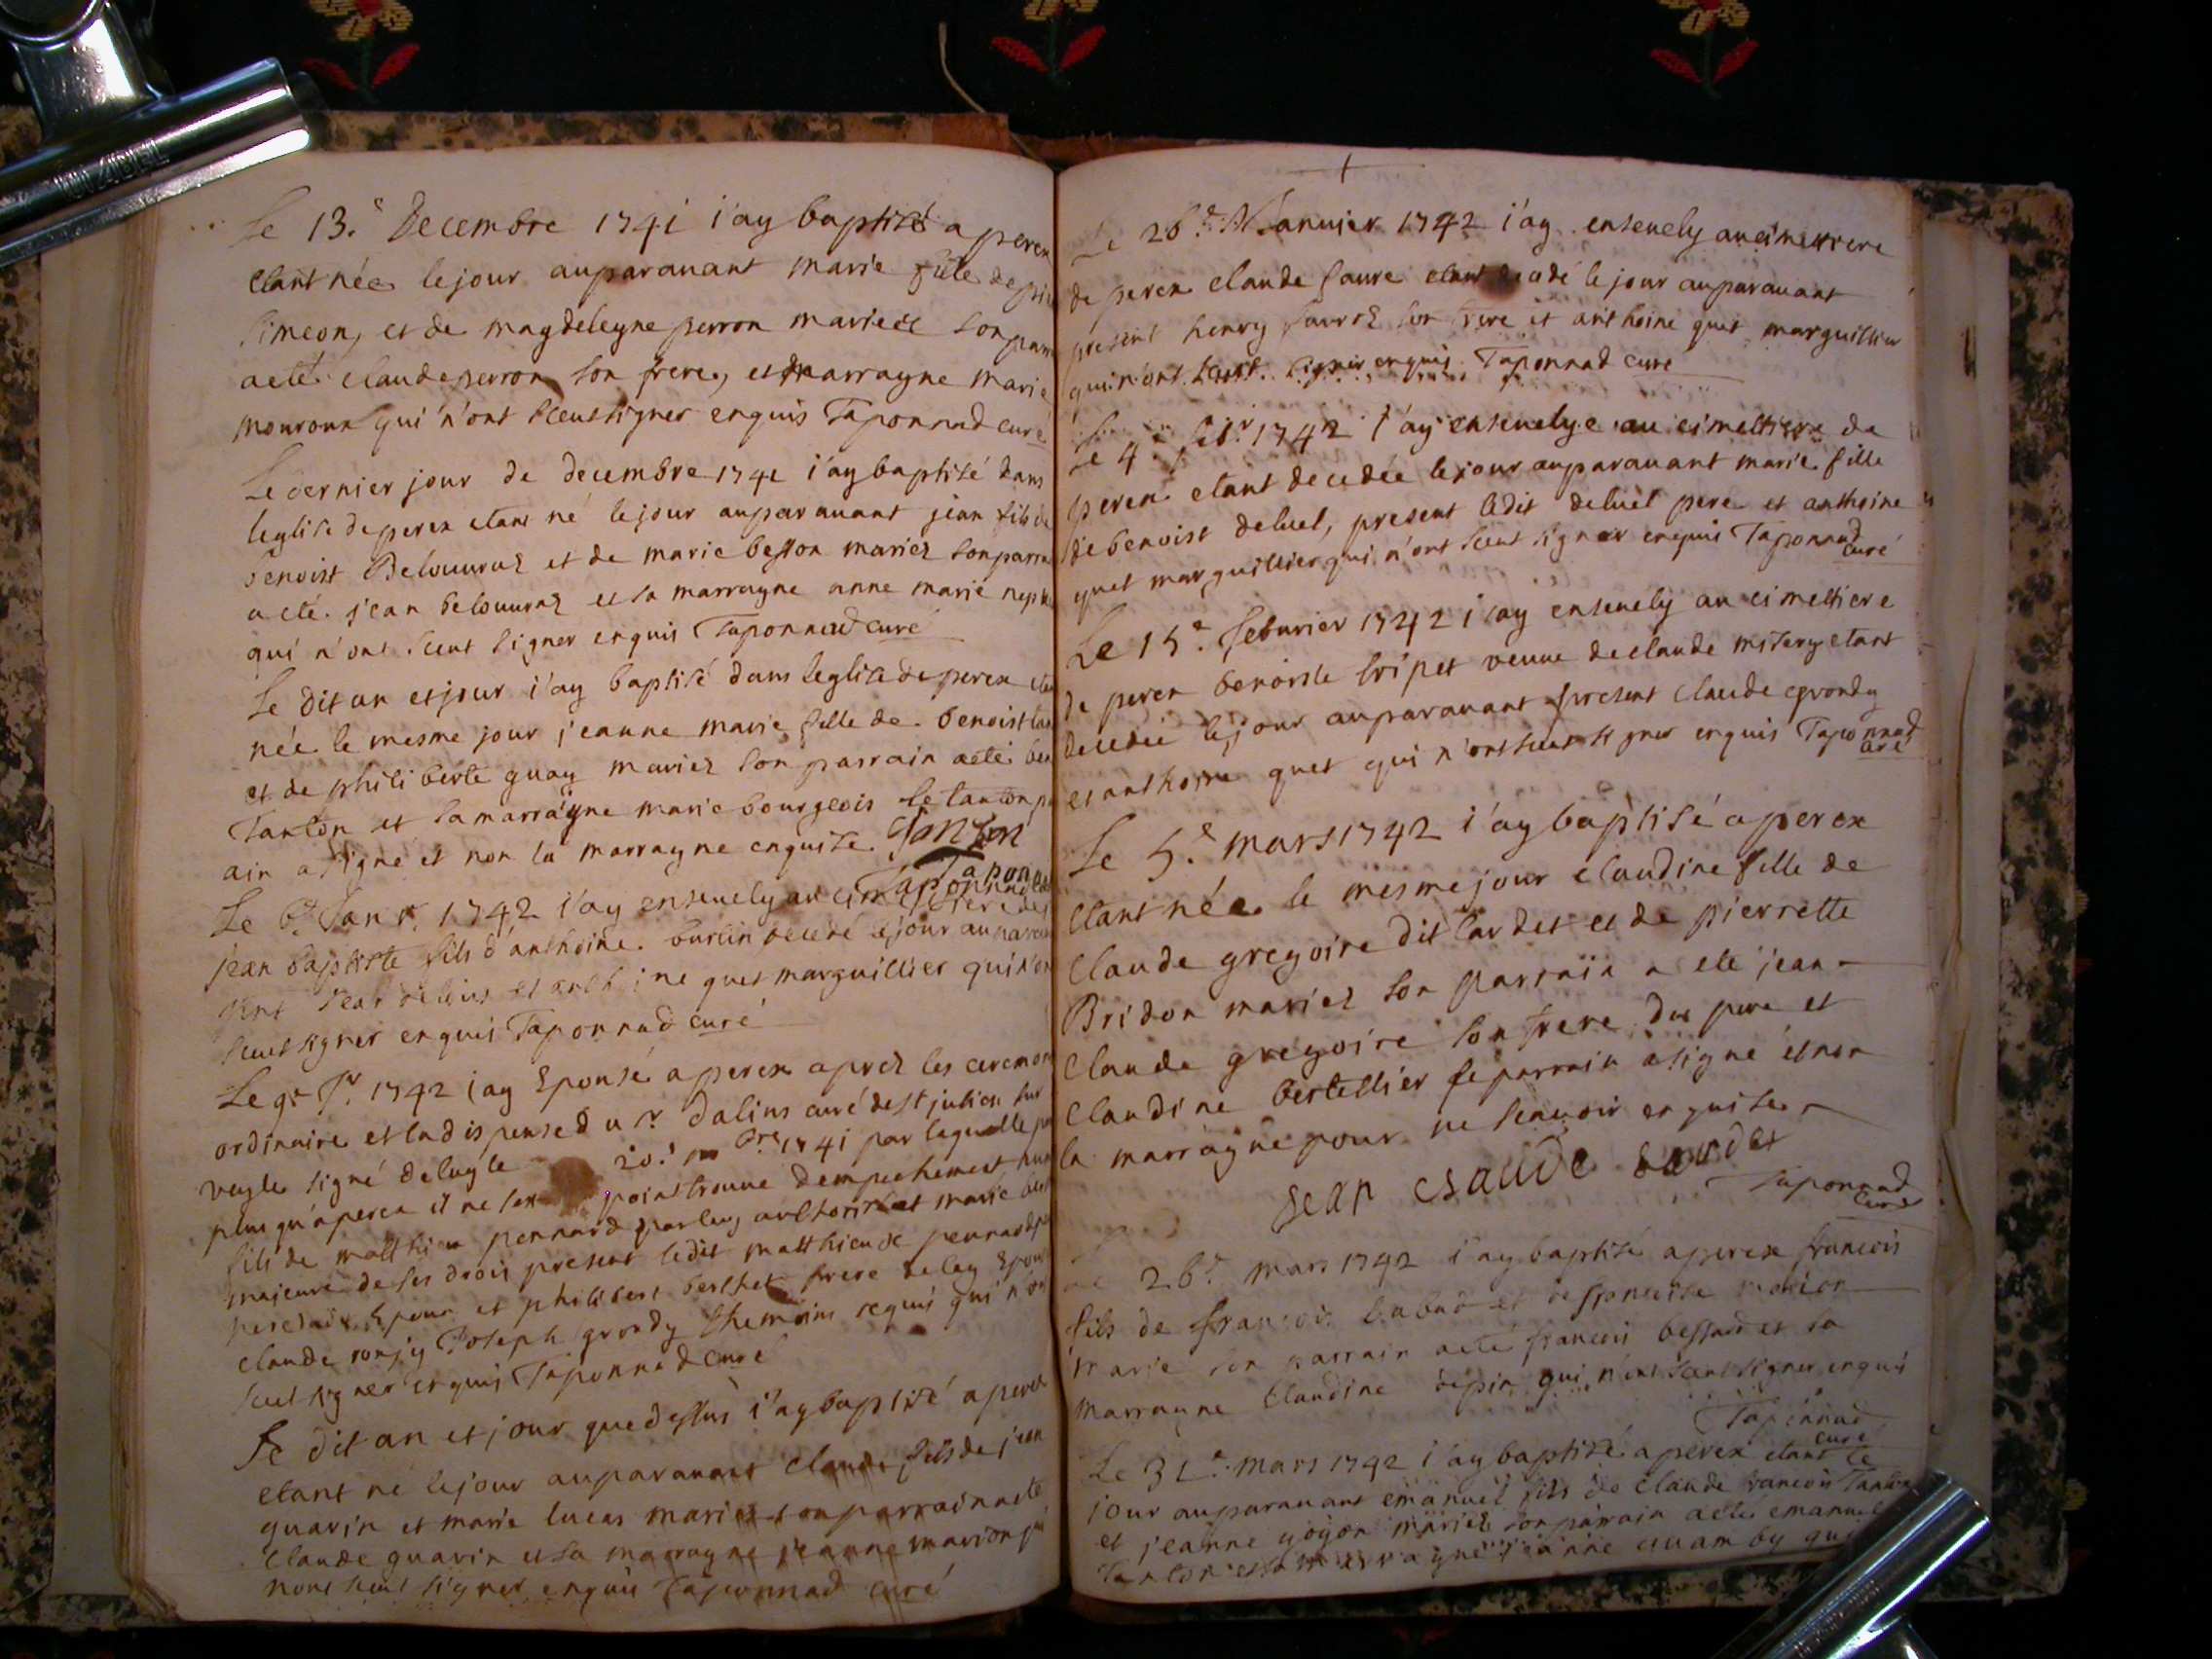 Le 13.e Decembre 1741 i'ay baptisé a perex
etant née le jour auparauant marie fille de
Simeon, et de magdeleyne perron mariez son
aeté claude perron son frere, et marrayne marie
qui n'ont sceut signer enquis Taponnad curé
Le dernier jour de decembre 1741 i'ay baptisé dans
leglise de perex etant né le jour auparauant jean fils de
benoist Delouuraz et de marie besson mariez son
aeté jean Delouuraz et sa marrayne anne marie
qui n'ont sceut signer enquis Taponnad curé
Le dit an et jour i'ay baptisé dans leglise de perex
née le mesme jour jeanne marie fille de benoist
et de philiberte guay mariez son parrain aeté
Tanton et sa marrayne marie bourgeois le tanton
ain a signé et non la marrayne enquise. Tanton
Taponnad
Le 6.e Janr. 1742 i'ay enseuely au
jean baptiste fils d'anthoine burtin decedé le jour
jean et anthoine guet marguillier qui n'ont
sceut signer enquis Taponnad curé
Le 9e Jr. 1742 i'ay Epousé a perex aprez les
ordinaire et la dispense du sr. Dalins curé de st julien sur
veyle signé deluyle 20.e 1741 par laquelle
plus qu'a perex il ne point trouué dempechement
fils de matthieu pennard par luy authorisé et marie
majeure de ses drois present ledit matthieu pennard
Epoux et philibert berthet frere de ley
claude ronjy Joseph grondy themoins requis qui n'ont
sceut signer enquis Taponnad curé
Le dit an et jour que dessus i'ay baptisé a perex
etant né le jour auparauant claude fils de jean
guarin et marie lucas mariez son parrain aeté
claude guarin et sa marrayne jeanne marion
n'ont sceut signer enquis Taponnad curé
Le 26.e Januier 1742 i'ay enseuely au cimettiere
de perex claude faure etant decedé le jour auparauant
present henry son frere et anthoine guet marguillier
qui n'ont sceut signer enquis Taponnad curé
Le 4.e 1742 i'ay enseuelye au cimettiere de
perex etant decedée le jour auparauant marie fille
de benoist deluel, present ledit deluel pere et anthoine
guet marguillier qui n'ont sceut signer enquis Taponnad
curé
Le 15.e feburier 1742 i'ay enseuely au cimettiere
de perex benoiste tripet veuue de claude misery etant
decedée le jour auparauant present claude grondy
et anthoine guet qui n'ont sceut signer enquis Taponnad
curé
Le 5.e mars 1742 i'ay baptisé a perex
etant née le mesme jour claudine fille de
claude gregoire dit lardet et de pierrette
Bridon mariez son parrain a eté jean
claude gregoire son frere du pere et
claudine bertellier le parrain a signé et non
la marrayne pour ne scauoir enquise
jean claude lardet
Taponnad
curé
26.e mars 1742 i'ay baptisé a perex francois
fils de francois
son parrain aeté francois bessard et sa
marrayne claudine depin qui n'ont sceut signer enquis
Taponnad
curé
Le 31.e mars 1742 i'ay baptisé a perex etant le
jour auparauant emanuel fils de claude francois
et jeanne goyon mariez son parrain aeté emanuel
Tanton et sa marrayne jeanne